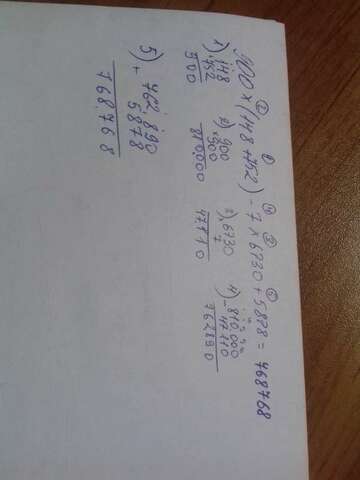 900 x (148 + 752) - 7 x 6730 + 5878 = 768768
1) 148
+ 752
900
2) 900
x 900
810,000
3) 6730
7
47110
4) 810,000
- 47,110
762890
5) 762,890
+ 5878
768,768